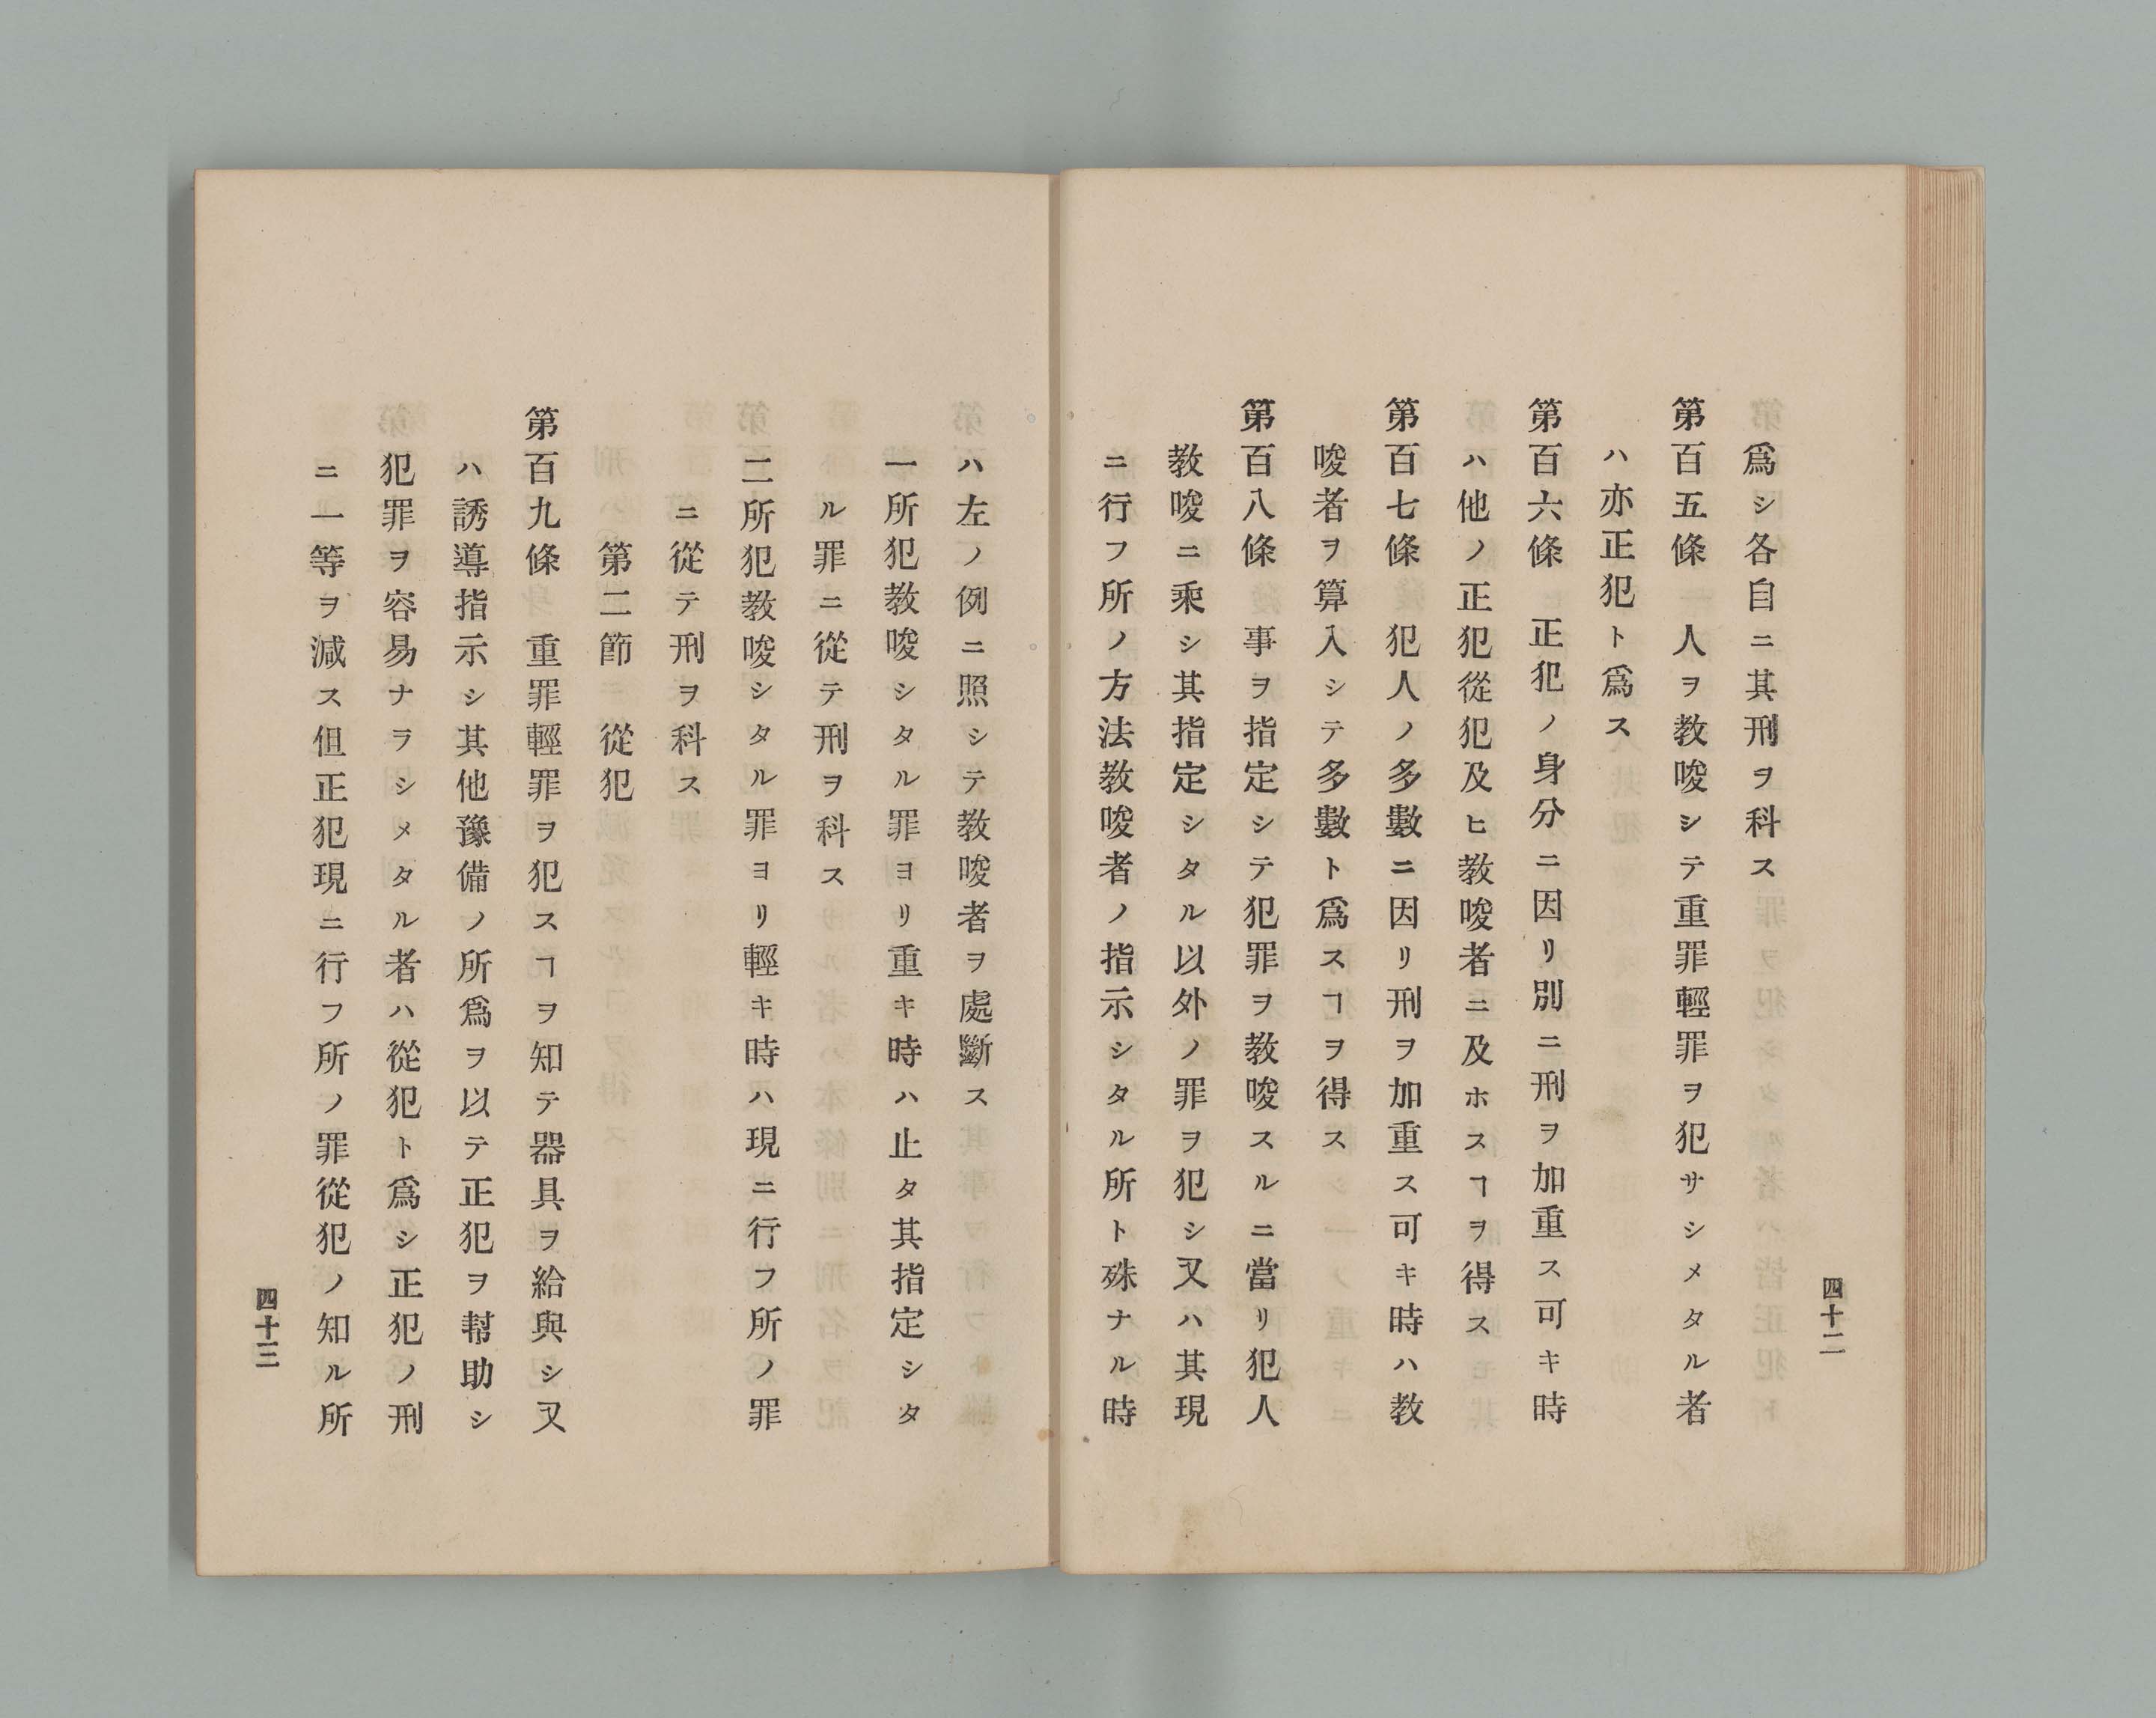 爲シ各自ニ其刑ヲ科ス
第百五條　人ヲ教唆シテ重罪輕罪ヲ犯サシメタル者
ハ亦正犯ト爲ス
第百六條　正犯ノ身分ニ因リ別ニ刑ヲ加重ス可キ時
ハ他ノ正犯從犯及ヒ教唆者ニ及ホスヿヲ得ス
第百七條　犯人ノ多數ニ因リ刑ヲ加重ス可キ時ハ教
唆者ヲ算入シテ多數ト爲スヿヲ得ス
第百八條　事ヲ指定シテ犯罪ヲ教唆スルニ當リ犯人
教唆ニ乘シ其指定シタル以外ノ罪ヲ犯シ又ハ其現
ニ行フ所ノ方法教唆者ノ指示シタル所ト殊ナル時
四十二
ハ左ノ例ニ照シテ教唆者ヲ處斷ス
一所犯教唆シタル罪ヨリ重キ時ハ止タ其指定シタ
ル罪ニ從テ刑ヲ科ス
二所犯教唆シタル罪ヨリ輕キ時ハ現ニ行フ所ノ罪
ニ從テ刑ヲ科ス
第二節　從犯
第百九條　重罪輕罪ヲ犯スヿヲ知テ器具ヲ給與シ又
ハ誘導指示シ其他豫備ノ所爲ヲ以テ正犯ヲ幇助シ
犯罪ヲ容易ナラシメタル者ハ從犯ト爲シ正犯ノ刑
ニ一等ヲ減ス但正犯現ニ行フ所ノ罪從犯ノ知ル所
四十三